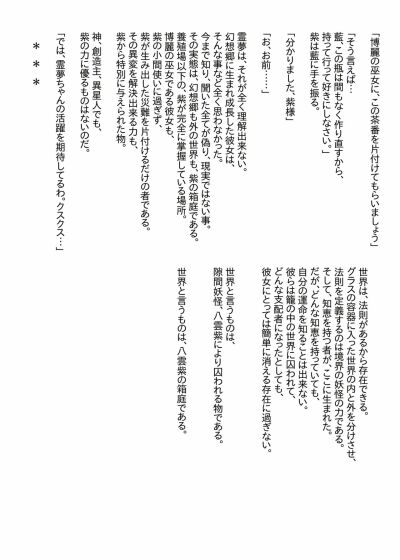 「博麗の巫女に、この茶番を片付けてもらいましょう」
「そう言えば…
藍、この瓶は間もなく作り直すから、
持って行って好きにしなさい。」
紫は藍に手を振る。
「分かりました、紫様」
「お、お前……」
霊夢は、それが全く理解出来ない。
幻想郷に生まれ成長した彼女は、
そんな事など全く思わなかった。
今まで知り、聞いた全てが偽り、現実ではない事。
その実態は、幻想郷も外の世界も、紫の箱庭である。
養殖場以下の、紫が完全に掌握している場所。
博麗の巫女である彼女も、
紫の小間使いに過ぎず、
紫が生み出した災難を片付けるだけの者である。
その異変を解決出来る力も、
紫から特別に与えられた物。
神、創造主、異星人でも、
紫の力に優るものはないのだ。
***
「では、霊夢ちゃんの活躍を期待してるわ。クスクス…」
世界は、法則があるから存在できる。
グラスの容器に入った世界の内と外を分けさせ、
法則を定義するのは境界の妖怪の力である。
そして、知恵を持つ者が、ここに生まれた。
だが、どんな知恵を持っていても、
自分の運命を知ることは出来ない。
彼らは籠の中の世界に囚われて、
どんな支配者になったとしても、
彼女にとっては簡単に消える存在に過ぎない。
世界と言うものは、
隙間妖怪、八雲紫により囚われる物である。
世界と言うものは、八雲紫の箱庭である。